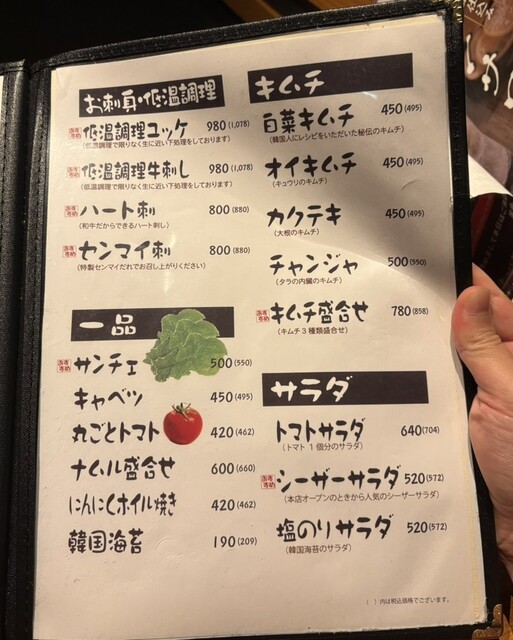 お刺身・低温調理
低温調理ユッケ 980(1,078)
(低温調理で限りなく生に近い下処理をしております)
低温調理牛刺し 980(1,078)
(低温調理で限りなく生に近い下処理をしております)
ハート刺 800(880)
(和牛だからできるハート刺し)
センマイ刺 800(880)
(特製センマイだれでお召し上がりください)
一品
サンチェ 500(550)
キャベツ 450(495)
丸ごとトマト 420(462)
ナムル盛合せ 600(660)
にんにくホイル焼き 420(462)
韓国海苔 190(209)
キムチ
白菜キムチ 450(495)
(韓国人にレシピをいただいた秘伝のキムチ)
オイキムチ 450(495)
(キュウリのキムチ)
カクテキ 450(495)
(大根のキムチ)
チャンジャ 500(550)
(タラの内臓のキムチ)
キムチ盛合せ 780(858)
(キムチ3種類盛合せ)
サラダ
トマトサラダ 640(704)
(トマト1個分のサラダ)
シーザーサラダ 520(572)
(本店オープンのときから人気のシーザーサラダ)
塩のりサラダ 520(572)
(韓国海苔のサラダ)
( )内は税込価格でございます。